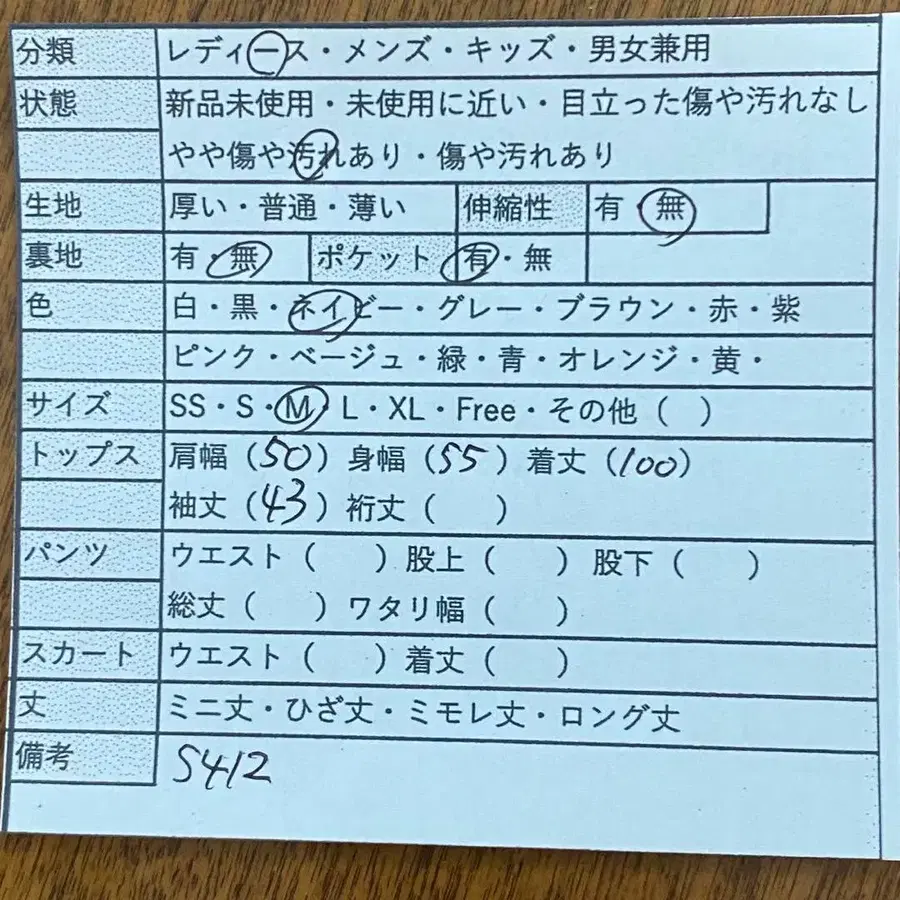 分類 レディース・メンズ・キッズ・男女兼用
状態 新品未使用・未使用に近い・目立った傷や汚れなし
やや傷や汚れあり・傷や汚れあり
生地 厚い・普通・薄い 伸縮性 有・無
裏地 有・無 ポケット 有・無
色 白・黒・ネイビー・グレー・ブラウン・赤・紫
ピンク・ベージュ・緑・青・オレンジ・黄・
サイズ SS・S・M・L・XL・Free・その他（ ）
トップス 肩幅（50）身幅（55）着丈（100）
袖丈（43）裄丈（ ）
パンツ ウエスト（ ）股上（ ）股下（ ）
総丈（ ）ワタリ幅（ ）
スカート ウエスト（ ）着丈（ ）
丈 ミニ丈・ひざ丈・ミモレ丈・ロング丈
備考 S412